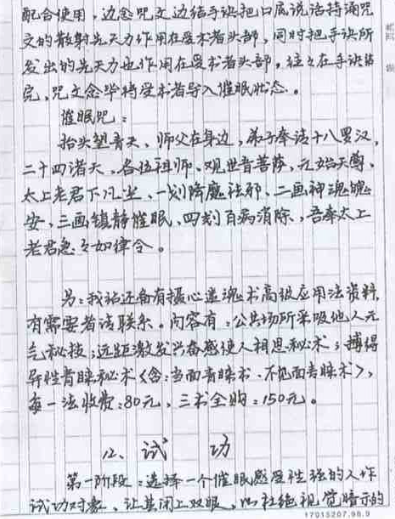 配合使用，边念咒文边结手诀把口底说话持诵咒
文的散射先天力作用在受术者头部，同时把手诀所
发出的先天力也作用在受术者头部。往々在手诀结
完，咒文念毕将受术者导入催眠状态。
催眠咒：
抬头望青天、师父在身边，弟子奉请十八罗汉，
二十四诸天、各位祖师、观世音菩萨、元始天尊、
太上老君下凡尘、一划降魔祛邪、二画神魂飘
安、三画镇静催眠、四划百病消除，吾奉太上
老君急々如律令。
另：我站还备有摄心迷魂术高级应用法资料，
有需要者请联系。内容有：公共场所采吸他人元
气秘技；远距激发兴奋感使人相思秘术；博得
异性青睐秘术〈含：当面青睐术、不见面青睐术〉，
每一法收费：80元，三术全购：150元。
12、试 功
第一阶段：选择一个催眠感受性强的人作
试功对象、让其闭上双眼，以杜绝视觉暗示的
17015207.98.9